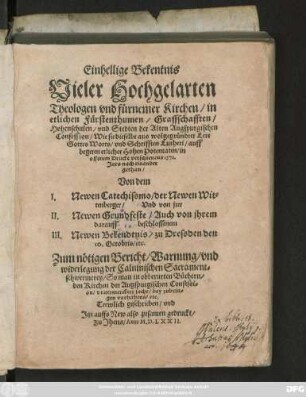 Einhellige Bekentnis
Vieler Hochgelarten
Theologen vnd fürnemer Kirchen / in
etlichen Fürstenthumen / Graffschafften /
Hohenschulen / vnd Stedten der Alten Augspurgischen
Confession / Wie sie dieselbe aus wolgegründter Lere
Gottes Worts / vnd Schrifften Lutheri / auff
begeren etlicher Hohen Potentaten / in
offenem Druck verschienens 1571.
Jars nach einander
gethan /
Von dem
I. Newen Catechismo / der Newen Wit-
tenberger / Vnd von jrer
II. Newen Grundfeste / Auch von jhrem
darauff beschlossenen
III. Newen Bekendtnis / zu Dresden den
10. Octobris / etc.
Zum nötigen Bericht / Warnung / vnd
widerlegung der Caluinischen Sacraments-
schwermerey / So man in obberurten Büchern /
den Kirchen der Augspurgischen Confession
Trewlich geschrieben / vnd
Itzt auffs New also zusamen gedruckt /
Zu Jhena / Anno M. D. LXXII.